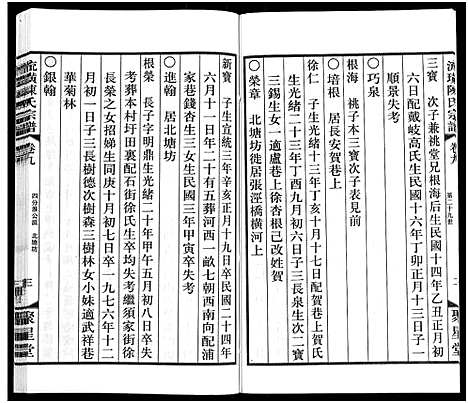 流璜陳氏宗譜
卷九
第二十九世
二
聚星堂
三寶 次子兼祧堂兄根海后生民國十四年乙丑正月初
六日配戴岐高氏生民國十六年丁卯正月十三日子一
順景失考
○巧泉
根海 祧子本三寶次子表見前
○培根 居長安賀巷上
榮根 子生光緒十三年丁亥十月十七日子三長泉生次二寶
三錫生女一適賀生光緒二十三年丁酉十二月初七日上賀氏
○榮章 北塘坊後遷居張涇橋橫河上
新寶 子生宣統三年辛亥正月十九日卒民國二十四年
六月十一日年二十有五葬河西一畝七朝西南向配浦
家巷錢杏生三女生民國三年甲寅卒失考
○進翰 居北塘坊
根榮 長子字明鼎生光緒二十年甲午五月初八日卒失
考葬本村圩田裏配石街徐氏生卒均失考繼須家街徐
長榮之女招娣生同治七月初七日卒一九七六年十二
月初一日子三長樹德次樹森三樹林女小妹適武祥巷
華菊林
○銀翰
流璜陳氏宗譜
卷九
四分泗公派 北塘坊
三
聚星堂